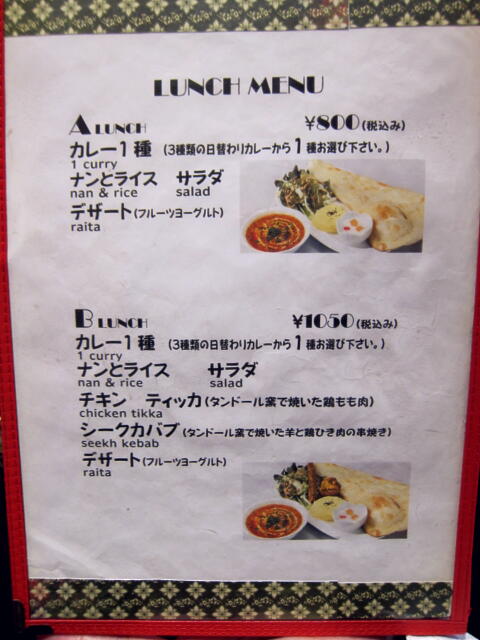 LUNCH MENU
A LUNCH ¥800(税込み)
カレー1種 (3種類の日替わりカレーから1種お選び下さい。)
1 curry
ナンとライス サラダ
nan & rice salad
デザート(フルーツヨーグルト)
raita
B LUNCH ¥1050(税込み)
カレー1種 (3種類の日替わりカレーから1種お選び下さい。)
1 curry
ナンとライス サラダ
nan & rice salad
チキン ティッカ(タンドール窯で焼いた鶏もも肉)
chicken tikka
シークカバブ(タンドール窯で焼いた羊と鶏ひき肉の串焼き)
seekh kebab
デザート(フルーツヨーグルト)
raita